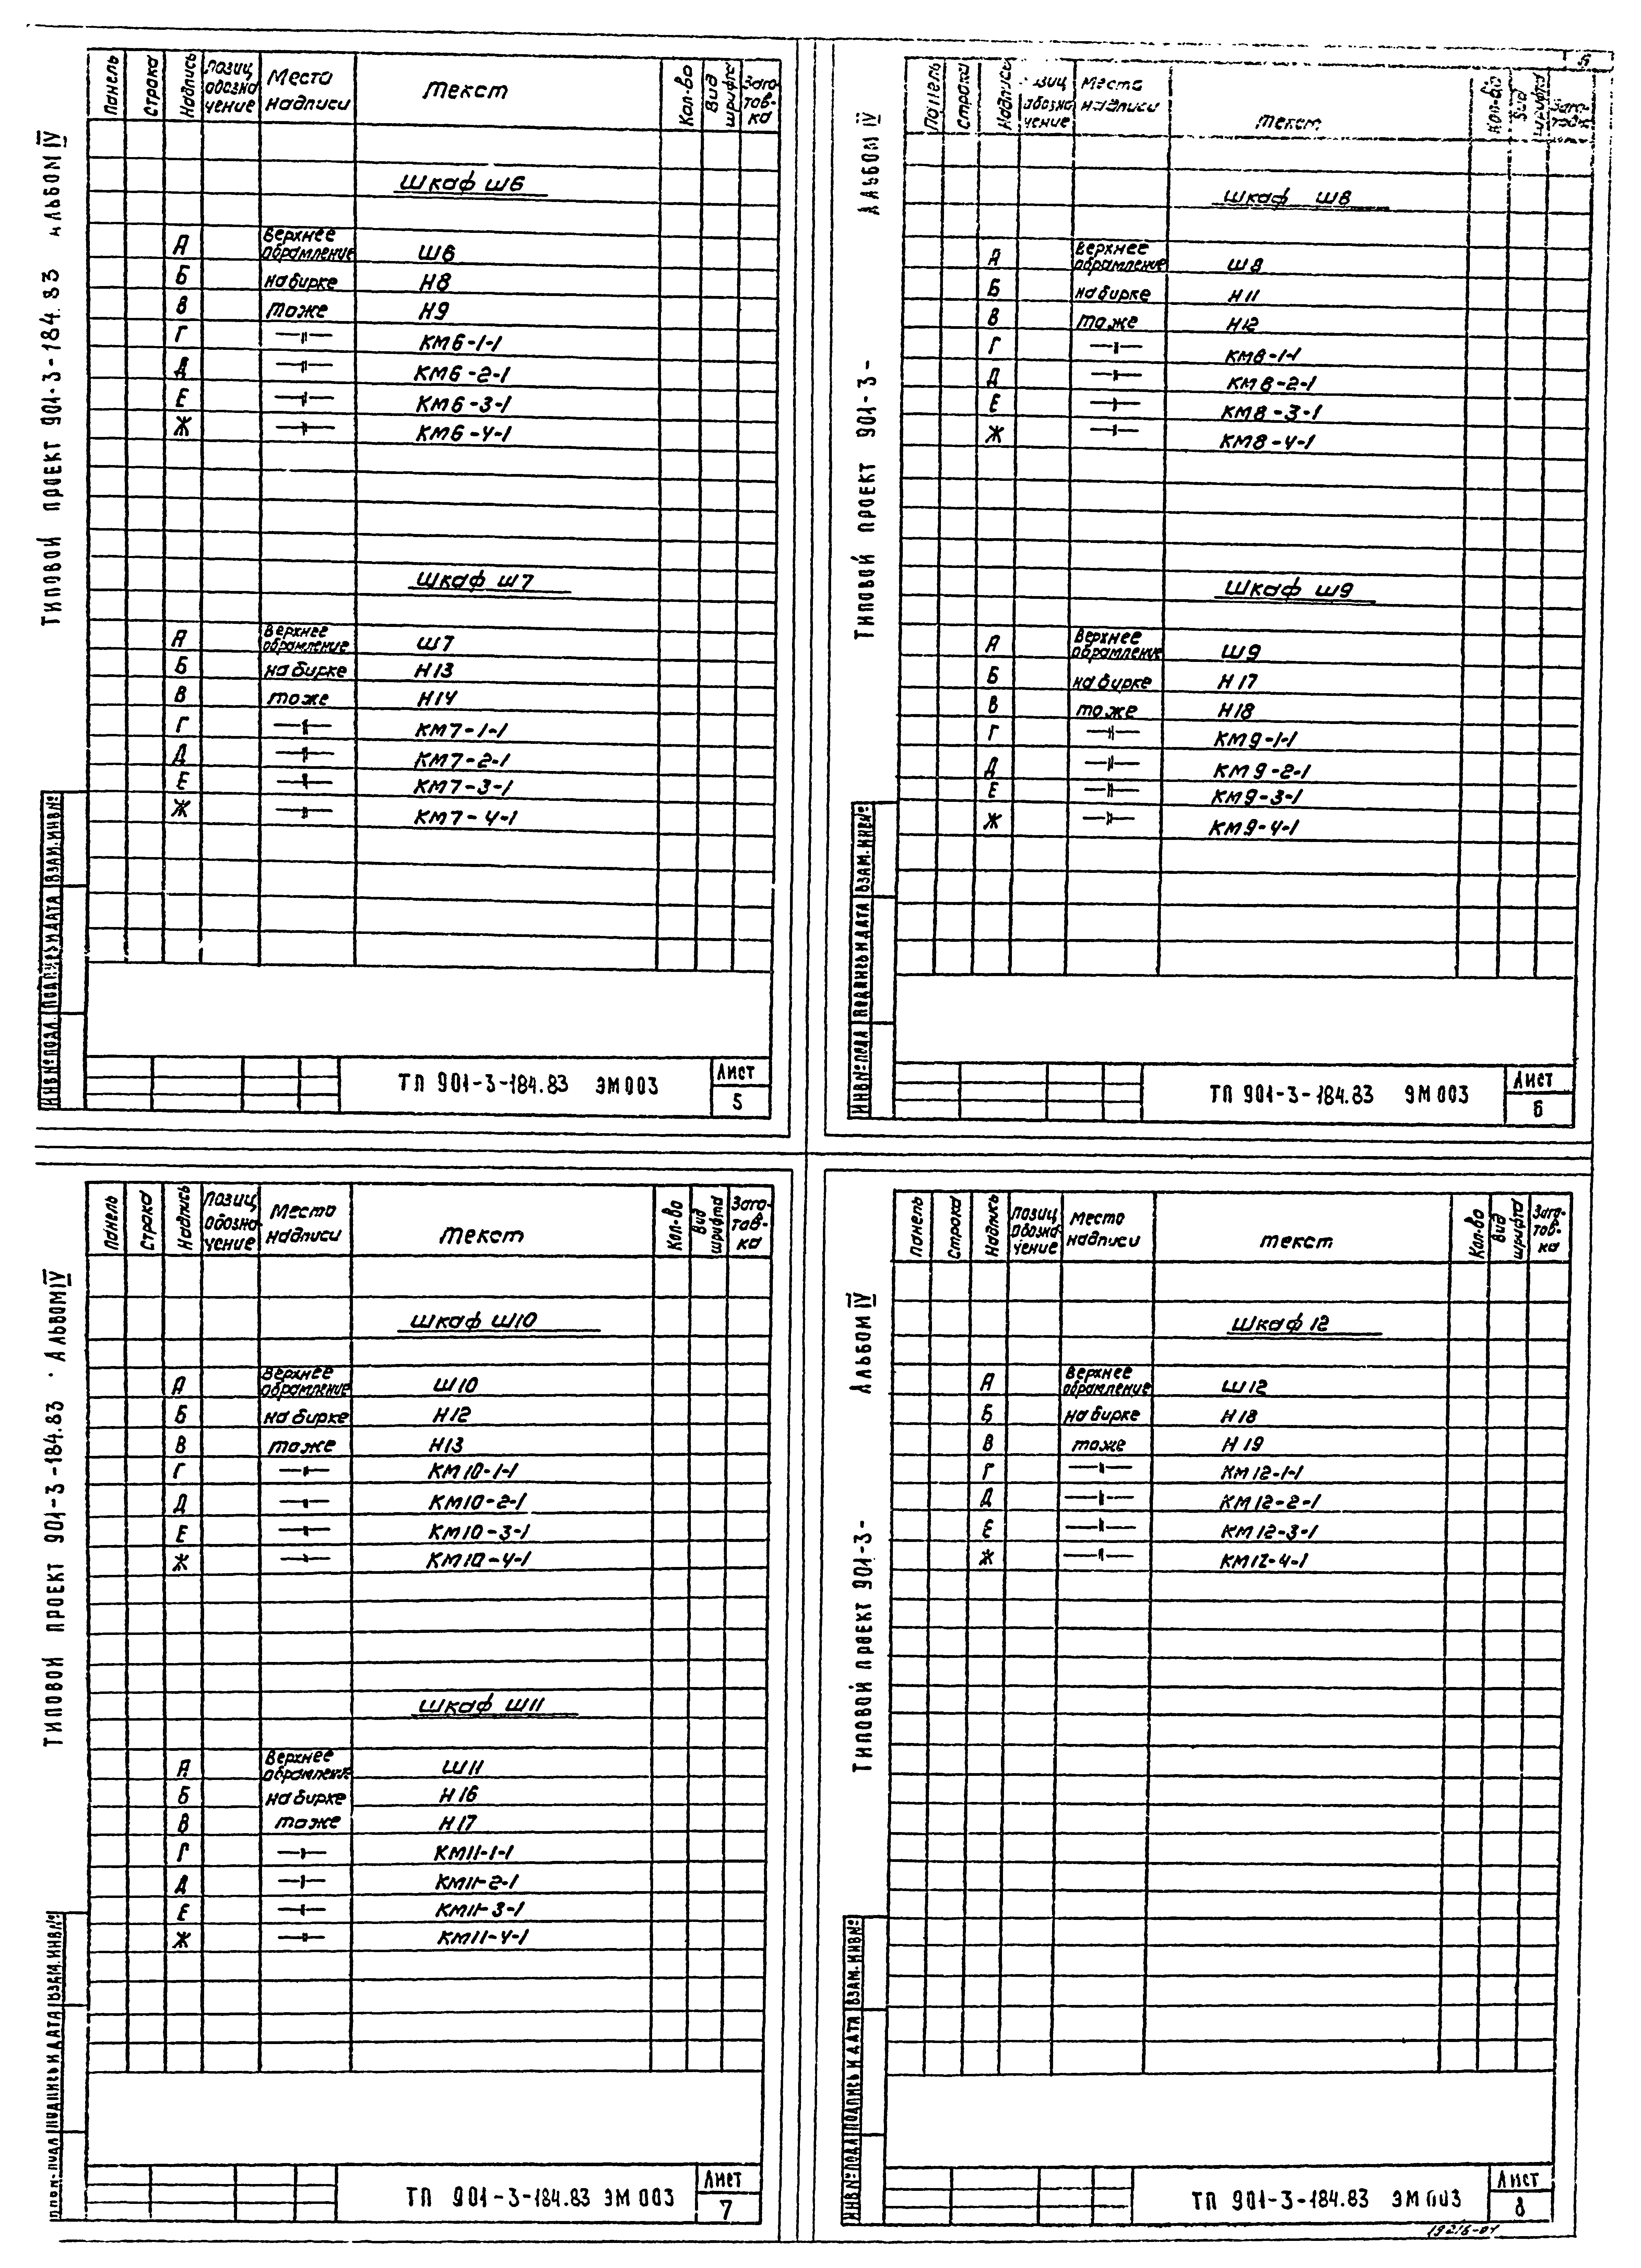 5
ТИПОВОЙ ПРОЕКТ 901-3-184.83 АЛЬБОМ IV
Панель Строка Надпись Позиц. обозна-чение Место надписи Текст Кол-во Вид шрифта Заго-тов-ка
Шкаф Ш6
А Верхнее обрамление Ш6
Б на бирке Н8
В тоже Н9
Г —〃— КМ6-1-1
Д —〃— КМ6-2-1
Е —〃— КМ6-3-1
Ж —〃— КМ6-4-1
Шкаф Ш7
А Верхнее обрамление Ш7
Б на бирке Н13
В тоже Н14
Г —〃— КМ7-1-1
Д —〃— КМ7-2-1
Е —〃— КМ7-3-1
Ж —〃— КМ7-4-1
ИНВ№ПОДЛ. ПОДПИСЬ И ДАТА ВЗАМ.ИНВ№
ТП 901-3-184.83 ЭМ003
Лист
5
ТИПОВОЙ ПРОЕКТ 901-3- АЛЬБОМ IV
Панель Строка Надпись Позиц обозна чение Место надписи Текст Кол-во Вид шрифта Заго-товк
Шкаф Ш8
А Верхнее обрамление Ш8
Б на бирке Н11
В тоже Н12
Г —〃— КМ8-1-1
Д —〃— КМ8-2-1
Е —〃— КМ8-3-1
Ж —〃— КМ8-4-1
Шкаф Ш9
А Верхнее обрамление Ш9
Б на бирке Н17
В тоже Н18
Г —〃— КМ9-1-1
Д —〃— КМ9-2-1
Е —〃— КМ9-3-1
Ж —〃— КМ9-4-1
ИНВ№ПОДЛ ПОДПИСЬ И ДАТА ВЗАМ.ИНВ№
ТП 901-3-184.83 ЭМ003
Лист
6
ТИПОВОЙ ПРОЕКТ 901-3-184.83 · АЛЬБОМ IV
Панель Строка Надпись Позиц. обозна-чение Место надписи Текст Кол-во Вид шрифта Заго-тов-ка
Шкаф Ш10
А Верхнее обрамление Ш10
Б на бирке Н12
В тоже Н13
Г —〃— КМ10-1-1
Д —〃— КМ10-2-1
Е —〃— КМ10-3-1
Ж —〃— КМ10-4-1
Шкаф Ш11
А Верхнее обрамление Ш11
Б на бирке Н16
В тоже Н17
Г —〃— КМ11-1-1
Д —〃— КМ11-2-1
Е —〃— КМ11-3-1
Ж —〃— КМ11-4-1
ПОДПИСЬ И ДАТА ВЗАМ.ИНВ№
ТП 901-3-184.83 ЭМ003
Лист
7
ТИПОВОЙ ПРОЕКТ 901-3- АЛЬБОМ IV
Панель Строка Надпись Позиц. обозна-чение Место надписи Текст Кол-во Вид шрифта Заго-тов-ка
Шкаф 12
А Верхнее обрамление Ш12
Б на бирке Н18
В тоже Н19
Г —〃— КМ12-1-1
Д —〃— КМ12-2-1
Е —〃— КМ12-3-1
Ж —〃— КМ12-4-1
ИНВ№ПОДЛ ПОДПИСЬ И ДАТА ВЗАМ.ИНВ№
ТП 901-3-184.83 ЭМ003
Лист
8
19216-01